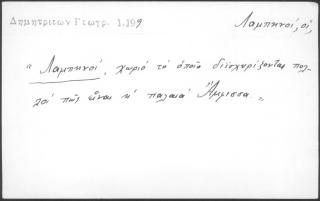 Δημητριεων Γεωγρ. 1.199
Λαμπηνοί, οἱ,
" Λαμπηνοί, χωριό τὸ ὁποῖο διϊσχυρίζονται πολ-
λοί πῶς εἶναι ἡ παλαιά Ἄμφισσα „